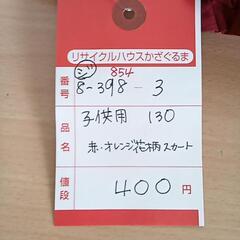 リサイクルハウスかざぐるま
ジ 854
番号 8-398-3
品名 子供用 130
赤・オレンジ花柄スカート
値段 400円